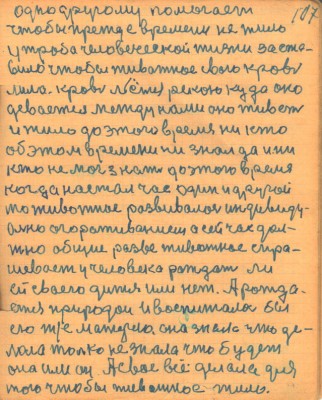 107
одно другому помогает
чтобы прежде времени не жило
утроба человеческой жизни заста-
вило чтобы животное свою кровь
лила. кровь льётся рекою куда оно
девается между нами оно живет
и жило до этого время ни кто
об этом времени ни знал да и ни
кто не мог знать до этого время
когда настал час один и другой
то животное развивалося индивиду-
ально огораживанием а сейчас дол-
жно общие разве животное спра-
шевает у человека рождат ли
ей своего дитя или нет. А рожда-
ется природой и воспиталось был
его же материю, она знала что де-
лала только не знала что будет
она им ст. А свое всё делала для
того чтобы животное жило.